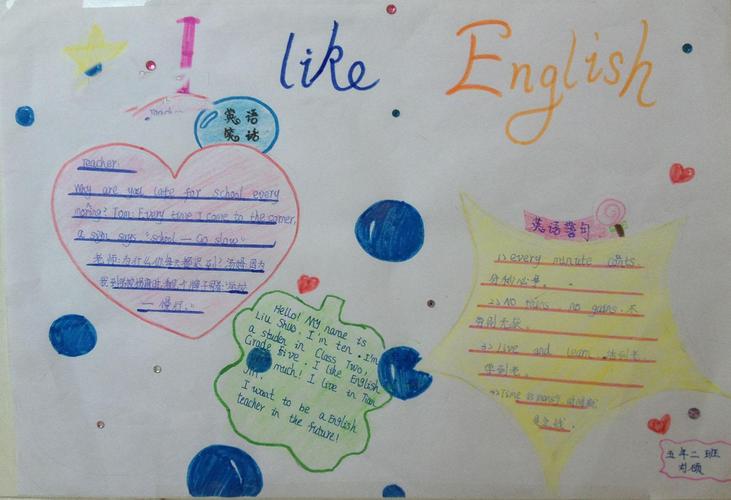 I like English
英语
笑话
Teacher:
Why are you late for school every
morning? Tom: Every time I come to the corner,
a sign says "school — Go slow"
老师:为什么你每天都迟到?汤姆:因为
— 慢行."
英语警句
1) every minute counts
分秒必争.
2) NO pains no gains. 不
劳则无获.
3) Live and learn. 活到老,
学到老.
4) Time is money. 时间就
是金钱.
Hello! My name is
Liu Shuo. I'm ten. I'm
a studen in Class Two,
Grade Five. I like English
much! I live in Tian
Jin.
I want to be a English
teacher in the future!
五年二班
刘硕